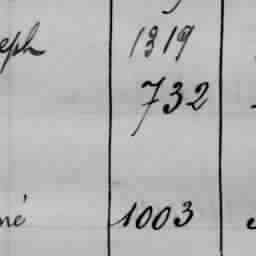 eph 1319
732
né 1003